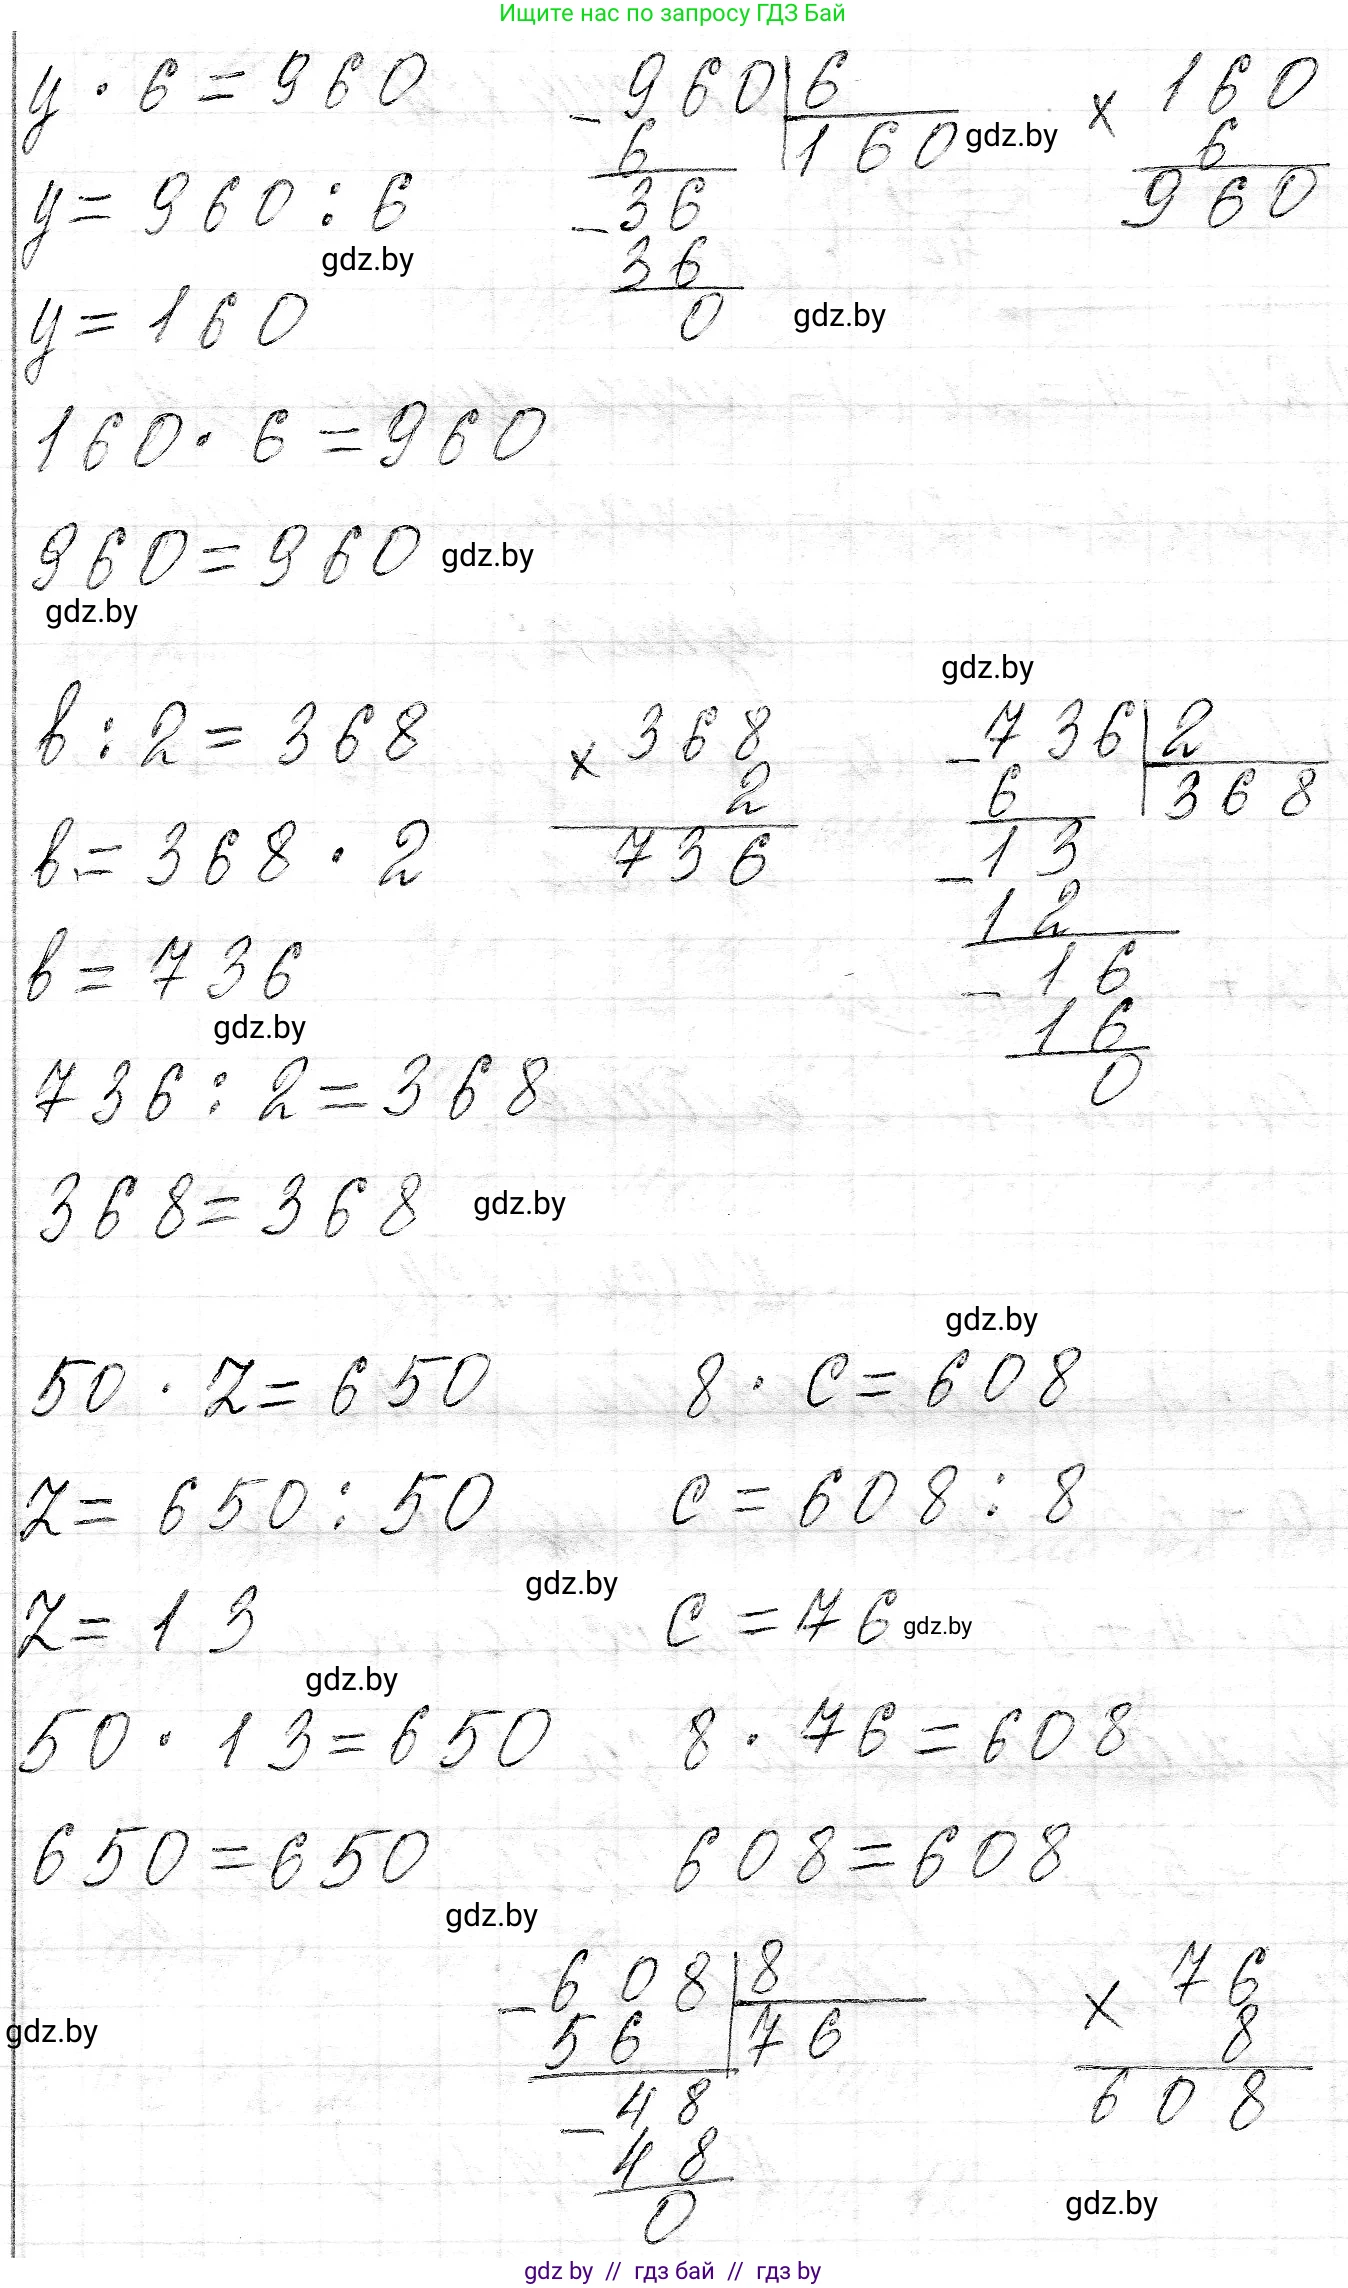 Ищите нас по запросу ГДЗ Бай
y · 6 = 960
y = 960 : 6
gdz.by
y = 160
160 · 6 = 960
960 = 960 gdz.by
gdz.by
- 960 | 6
6 160 gdz.by
- 36
36
0 gdz.by
× 160
6
960
b : 2 = 368
b = 368 · 2
b = 736
gdz.by
736 : 2 = 368
368 = 368 gdz.by
× 368
2
736
gdz.by
- 736 | 2
6 368
- 13
12
- 16
16
0
50 · z = 650
z = 650 : 50
gdz.by
z = 13
gdz.by
50 · 13 = 650
650 = 650
gdz.by
gdz.by
8 · c = 608
c = 608 : 8
c = 76 gdz.by
8 · 76 = 608
608 = 608
- 608 | 8
56 76
- 48
48
0
× 76
8
608
gdz.by
gdz.by
gdz by // гдз бай // гдз by